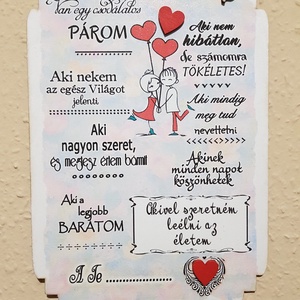 Van egy csodálatos
PÁROM
Aki nem
hibátlan,
de számomra
TÖKÉLETES!
Aki nekem
az egész Világot
jelenti
Aki mindig
meg tud
nevettetni
Aki
nagyon szeret,
és megtesz értem bármit
Akinek
minden napot
köszönhetek
Aki a
legjobb
BARÁTOM
Akivel szeretném
leélni az
életem
A Te